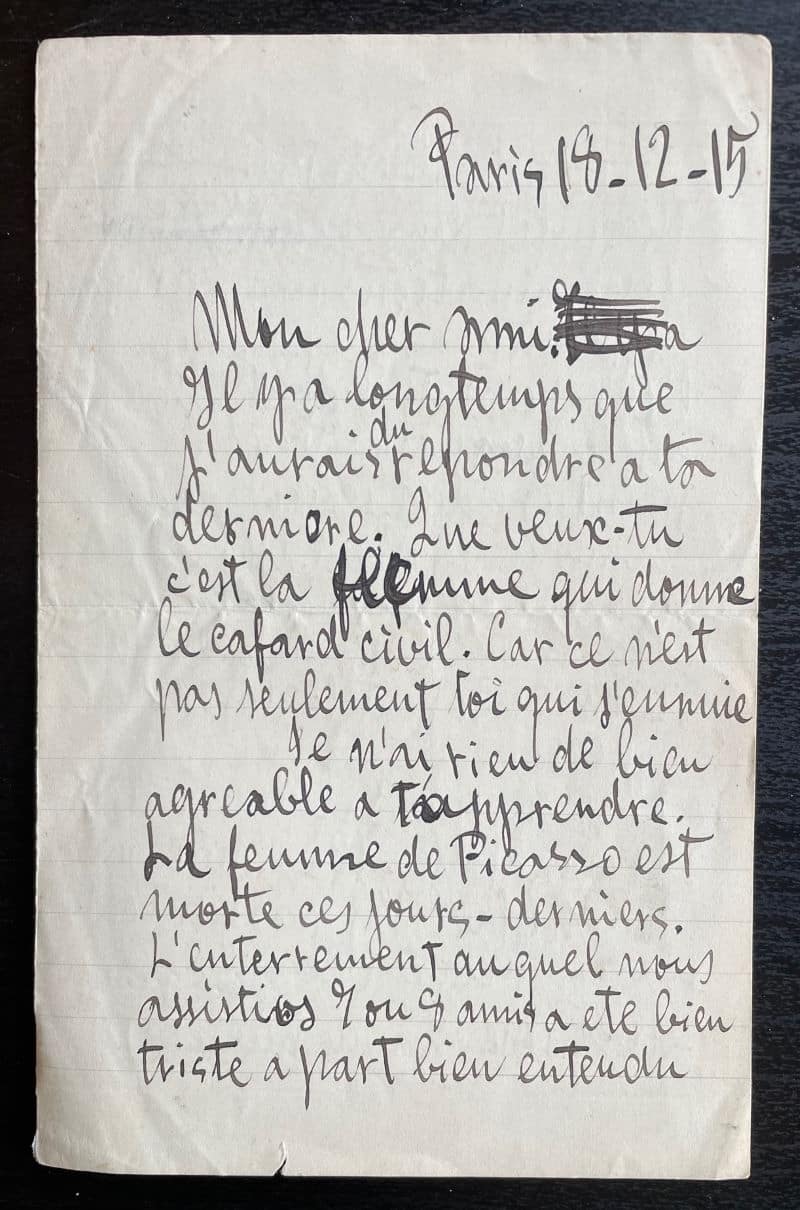 Paris 18-12-15
Mon cher ami. a
Il y a longtemps que
du
j'aurais repondre a ta
derniere. Que veux-tu
c'est la flemme qui donne
le cafard civil. Car ce n'est
pas seulement toi qui s'ennuie
Je n'ai rien de bien
agreable a t'apprendre.
La femme de Picasso est
morte ces jours-derniers.
L'enterrement auquel nous
assistios 7 ou 8 amis a ete bien
triste a part bien entendu